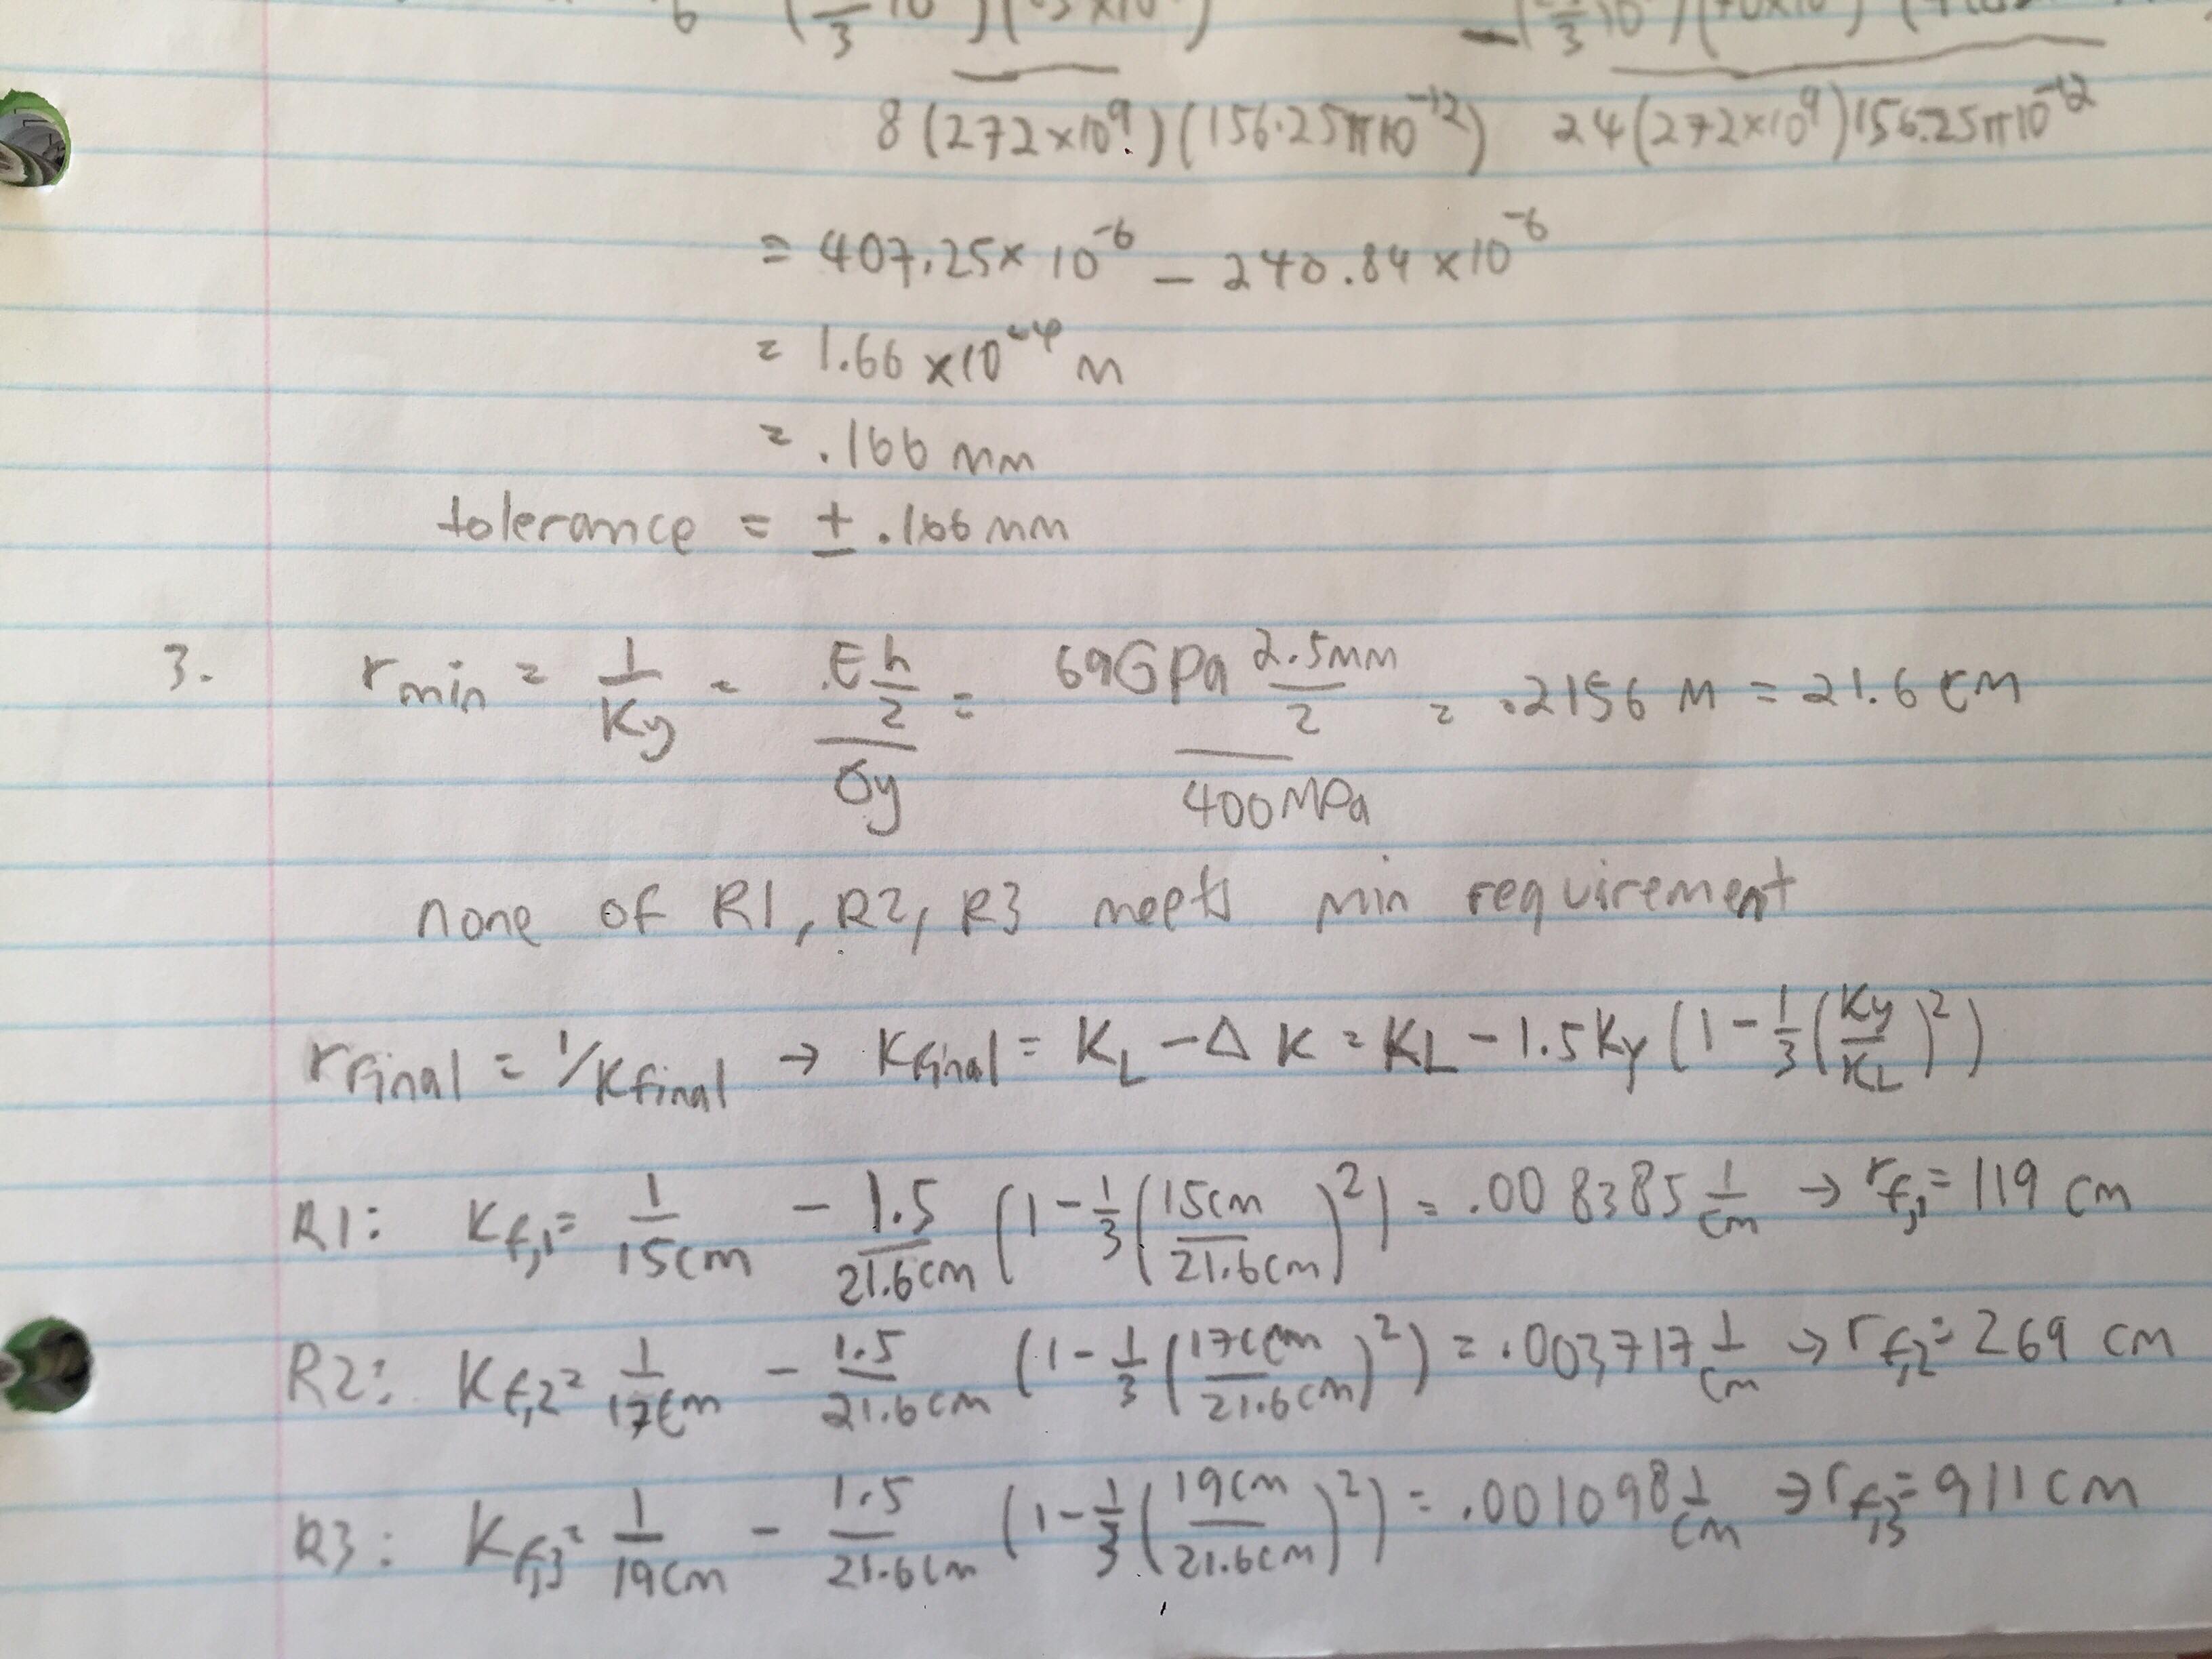 8(272×10⁹)(156.25π10⁻¹²) 24(272×10⁹)156.25π10⁻¹²
= 407.25×10⁻⁶ - 240.84×10⁻⁶
= 1.66×10⁻⁴ m
= .166 mm
tolerance = ± .166mm
3. rmin = 1/Ky = E h/2 / σy = 69GPa 2.5mm/2 / 400MPa = .2156 m = 21.6 cm
none of R1, R2, R3 meets min requirement
rfinal = 1/Kfinal → Kfinal = KL - ΔK = KL - 1.5Ky(1-1/3(Ky/KL)²)
R1: Kf,1 = 1/15cm - 1.5/21.6cm (1-1/3(15cm/21.6cm)²) = .008385 1/cm → rf,1 = 119 cm
R2: Kf,2 = 1/17cm - 1.5/21.6cm (1-1/3(17cm/21.6cm)²) = .003717 1/cm → rf,2 = 269 cm
R3: Kf,3 = 1/19cm - 1.5/21.6cm (1-1/3(19cm/21.6cm)²) = .001098 1/cm → rf,3 = 911cm